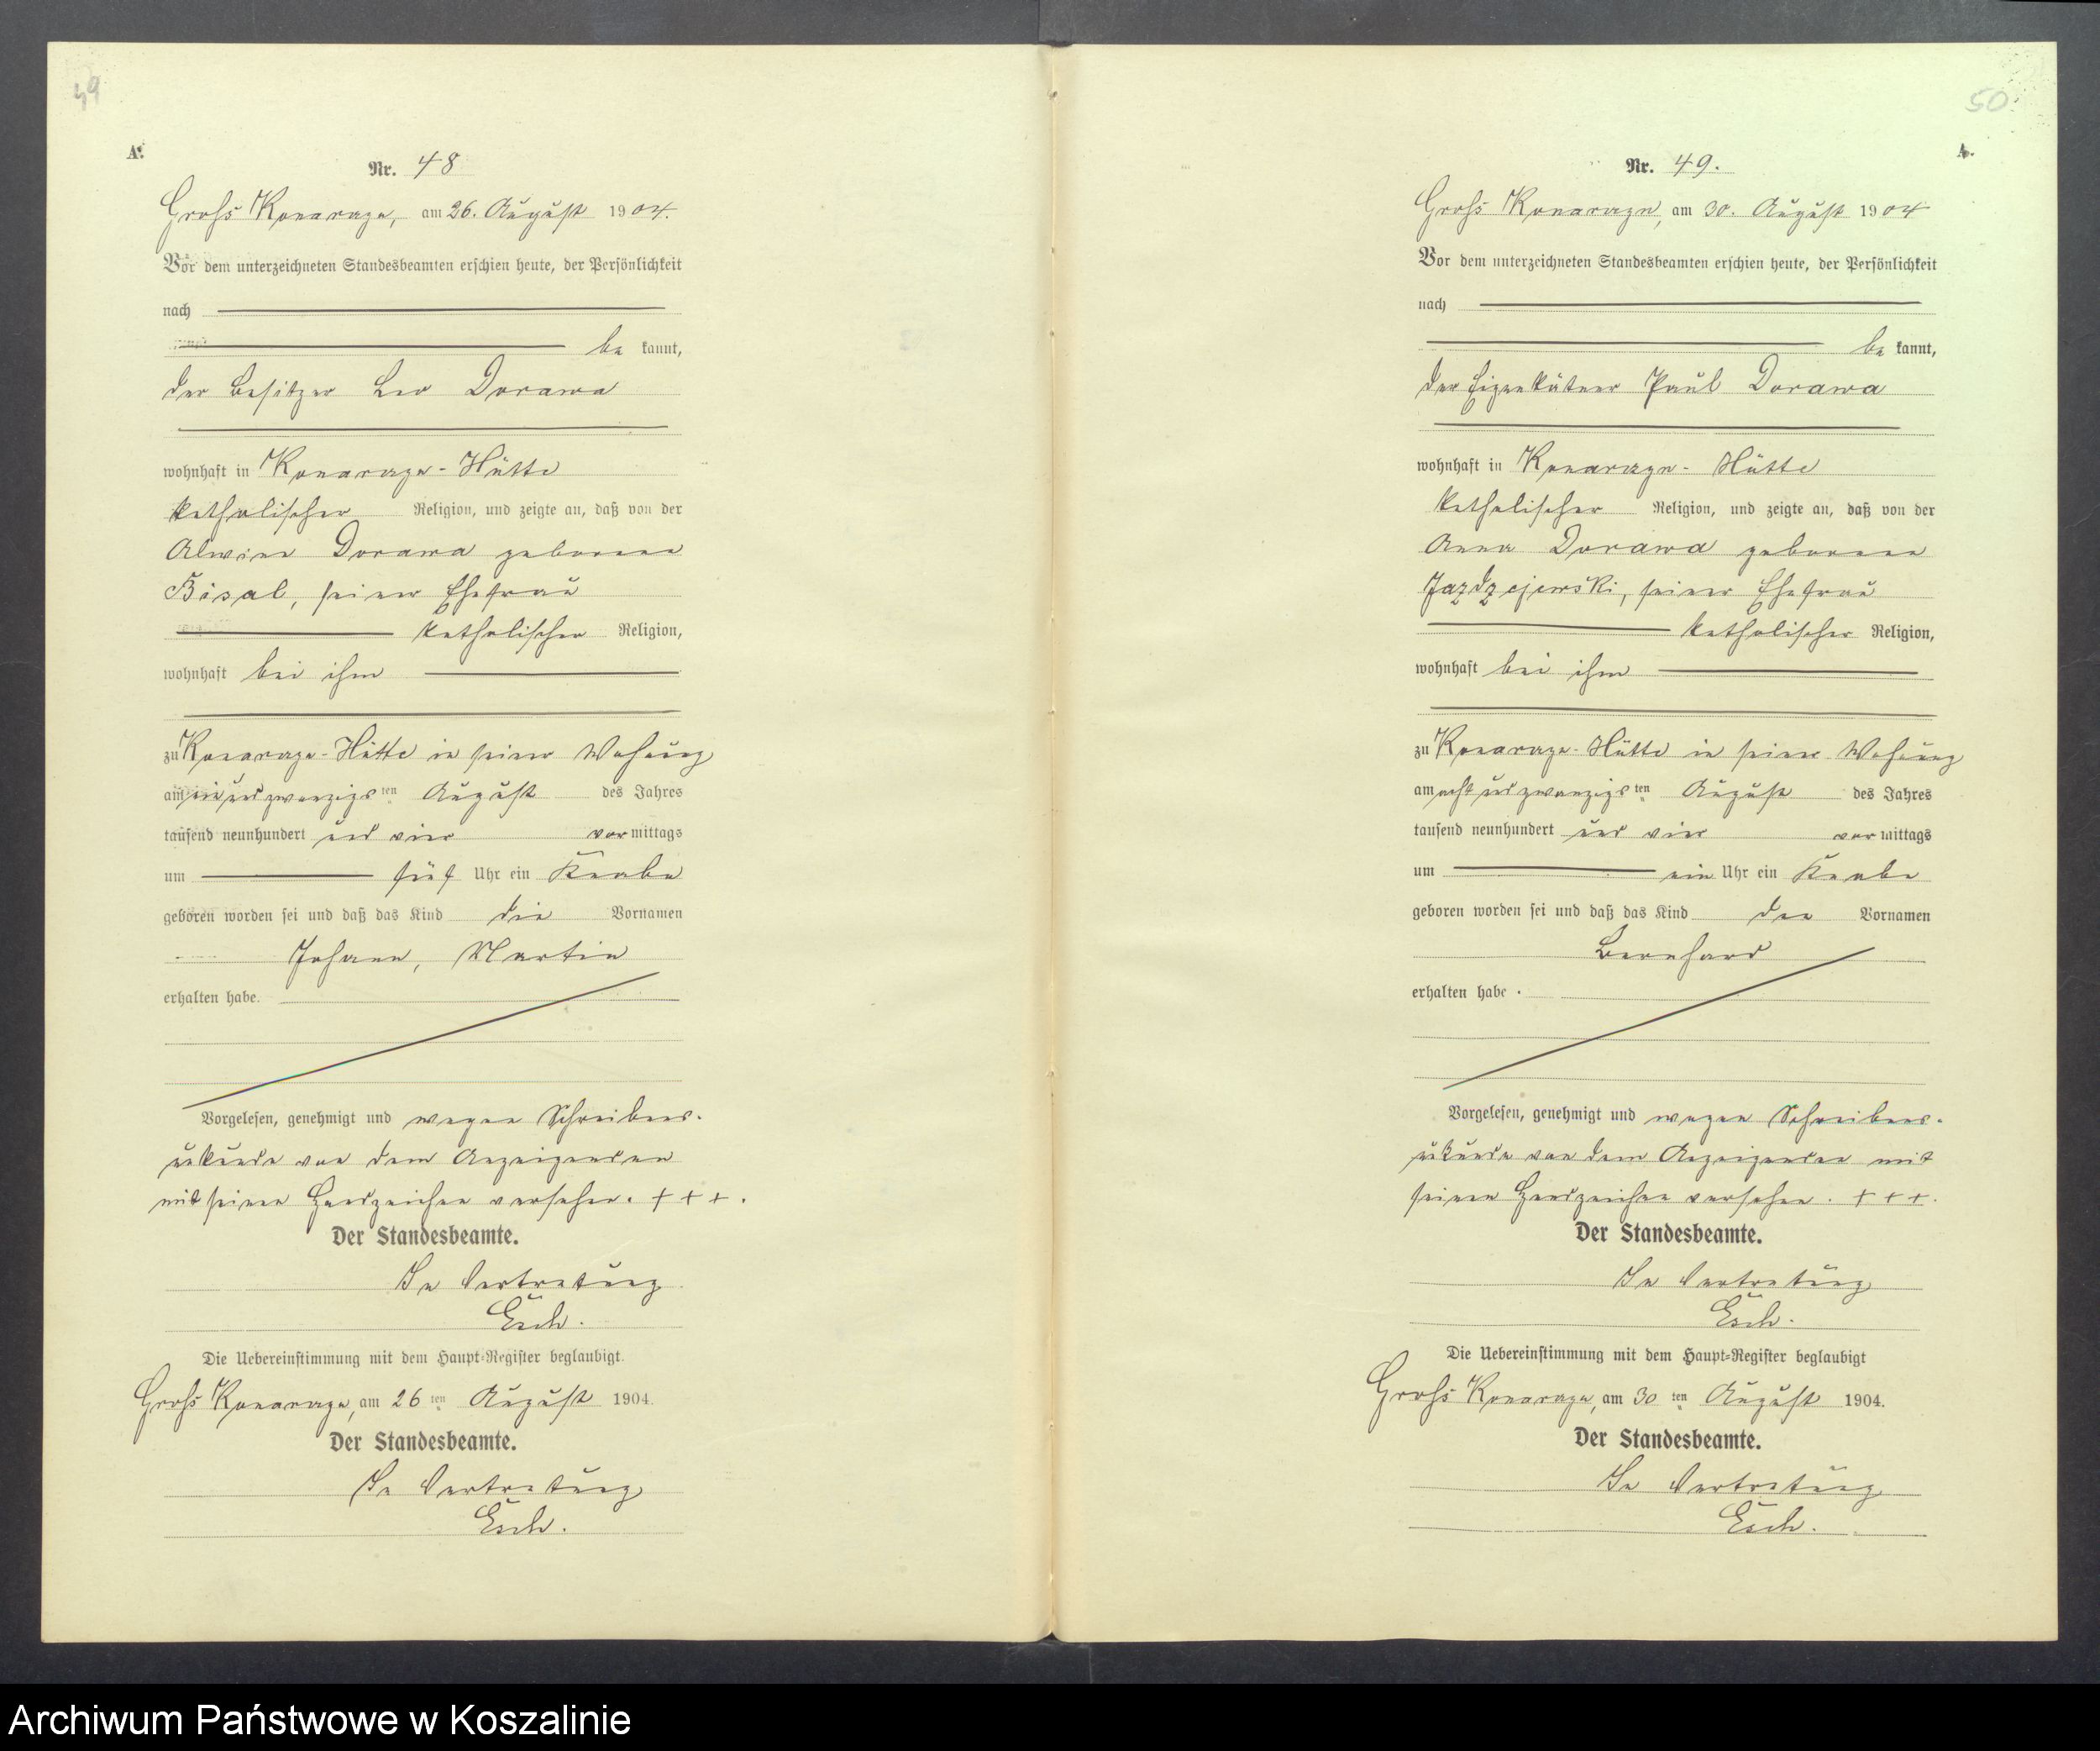 49
A.
Nr. 48
Groß Konarzyn, am 26. August 1904.
Vor dem unterzeichneten Standesbeamten erschien heute, der Persönlichkeit
nach
be kannt,
der Besitzer Leo Dorawa
wohnhaft in Konarzyn-Hütte
katholischer Religion, und zeigte an, daß von der
Alwine Dorawa geborene
Bisal, seiner Ehefrau
katholischer Religion,
wohnhaft bei ihm
zu Konarzyn-Hütte in seiner Wohnung
am undzwanzigsten August des Jahres
tausend neunhundert und vier vormittags
um fünf Uhr ein Knabe
geboren worden sei und daß das Kind die Vornamen
Johann, Martin
erhalten habe.
Vorgelesen, genehmigt und wegen Schreibens-
unkunde von dem Anzeigenden
mit seinen Handzeichen versehen. + + +.
Der Standesbeamte.
In Vertretung
Esch.
Die Uebereinstimmung mit dem Haupt-Register beglaubigt.
Groß Konarzyn, am 26ten August 1904.
Der Standesbeamte.
In Vertretung
Esch.
50
A.
Nr. 49.
Groß Konarzyn, am 30. August 1904
Vor dem unterzeichneten Standesbeamten erschien heute, der Persönlichkeit
nach
be kannt,
der Eigenkätner Paul Dorawa
wohnhaft in Konarzyn-Hütte
katholischer Religion, und zeigte an, daß von der
Anna Dorawa geborene
Jazdzejewski, seiner Ehefrau
katholischer Religion,
wohnhaft bei ihm
zu Konarzyn-Hütte in seiner Wohnung
am acht und zwanzigsten August des Jahres
tausend neunhundert und vier vormittags
um ein Uhr ein Knabe
geboren worden sei und daß das Kind den Vornamen
Bernhard
erhalten habe.
Vorgelesen, genehmigt und wegen Schreibens-
unkunde von dem Anzeigenden mit
seinen Handzeichen versehen. + + +.
Der Standesbeamte.
In Vertretung
Esch.
Die Uebereinstimmung mit dem Haupt-Register beglaubigt
Groß Konarzyn, am 30ten August 1904.
Der Standesbeamte.
In Vertretung
Esch.
Archiwum Państwowe w Koszalinie